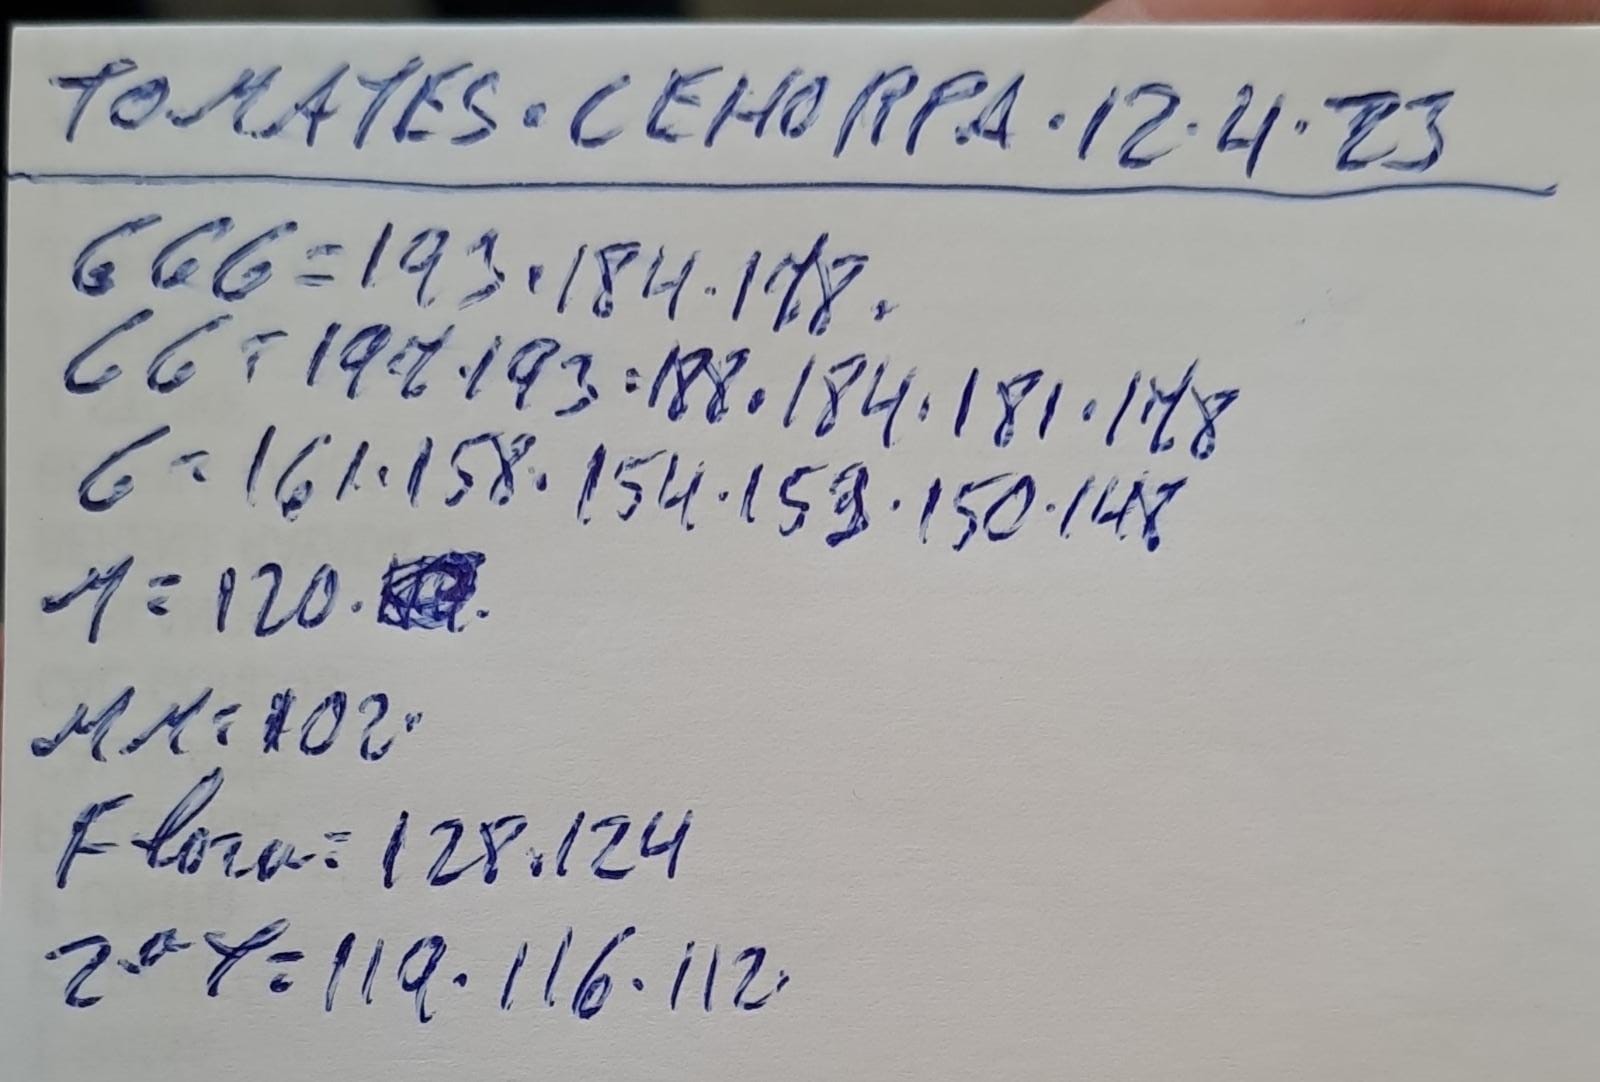 TOMATES · CEHORPA · 12·4·23
GGG = 193 · 184 · 178.
GG = 197 · 193 · 188 · 184 · 181 · 178
G = 161 · 158 · 154 · 153 · 150 · 147
M = 120 ·
MM = 102 ·
Flora = 128 · 124
2ª Y = 119 · 116 · 112 ·